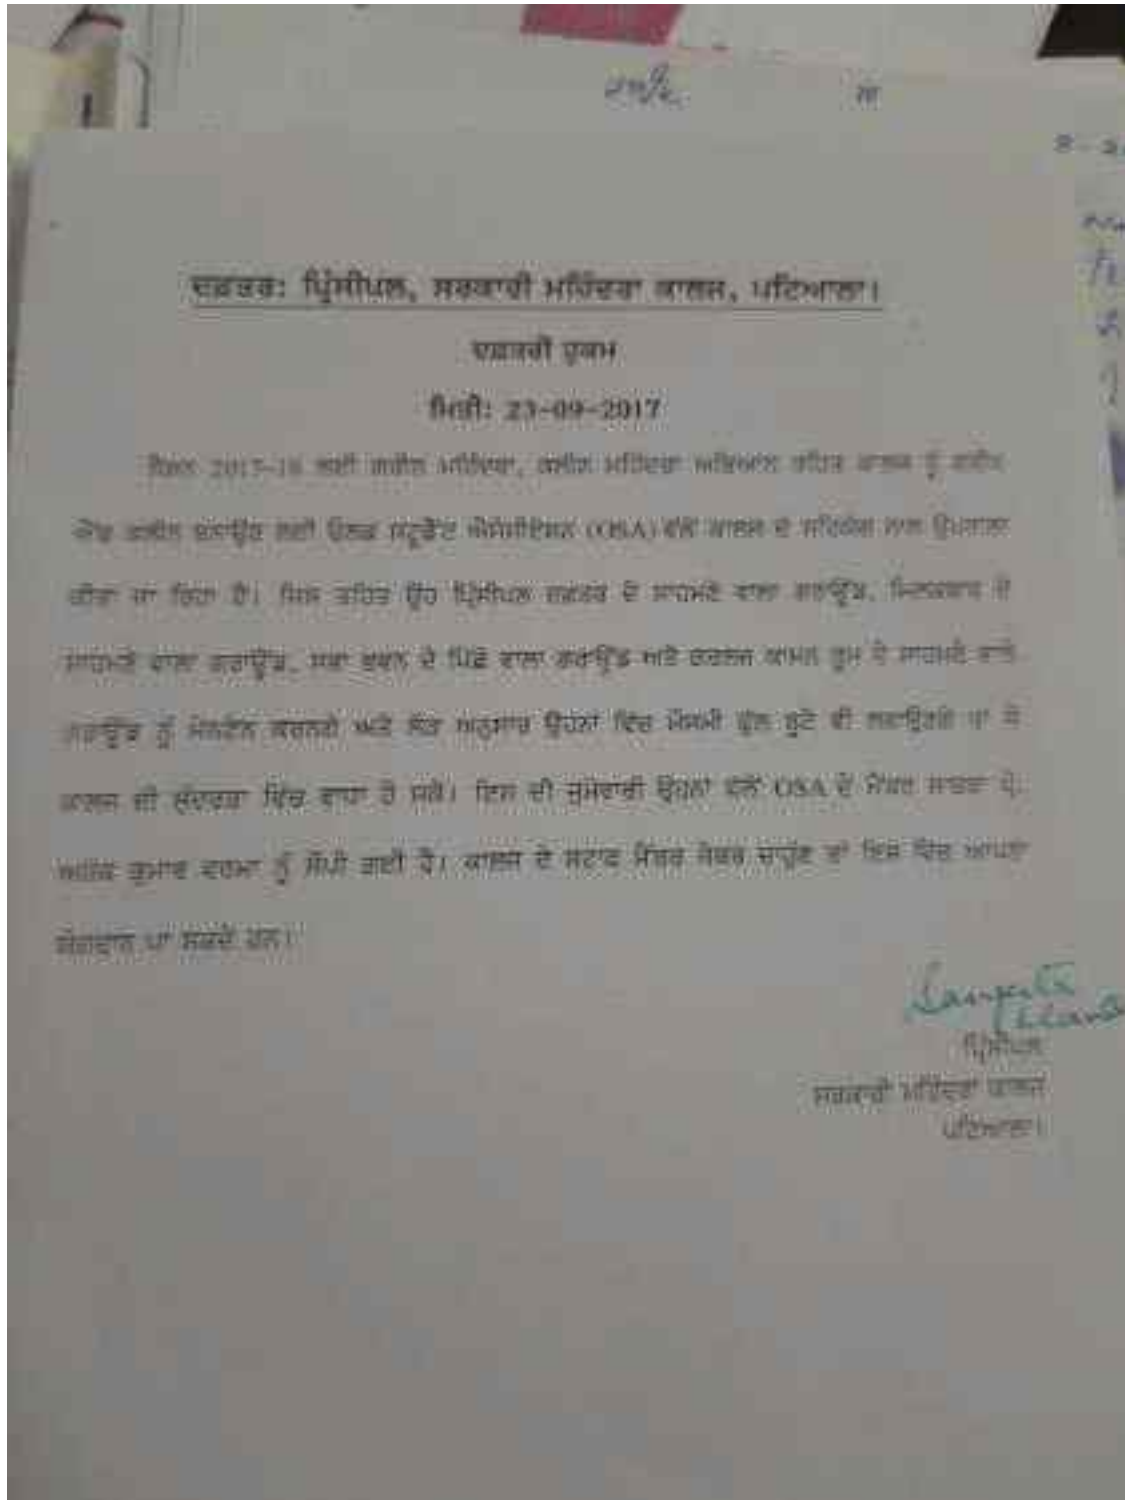 ਦਫ਼ਤਰ: ਪ੍ਰਿੰਸੀਪਲ, ਸਰਕਾਰੀ ਮਹਿੰਦਰਾ ਕਾਲਜ, ਪਟਿਆਲਾ।
ਦਫ਼ਤਰੀ ਹੁਕਮ
ਮਿਤੀ: 23-09-2017
ਲਈ ਗਰੀਨ ਮਹਿੰਦਰਾ, ਕਲੀਨ ਮਹਿੰਦਰਾ ਅਭਿਆਨ ਤਹਿਤ ਕਾਲਜ ਨੂੰ ਗਰੀਨ
ਐਂਡ ਕਲੀਨ ਬਨਾਉਣ ਲਈ ਓਲਡ ਸਟੂਡੈਂਟ ਐਸੋਸੀਏਸ਼ਨ (OSA) ਵੱਲੋਂ ਕਾਲਜ ਦੇ ਸਹਿਯੋਗ ਨਾਲ ਉਪਰਾਲਾ
ਕੀਤਾ ਜਾ ਰਿਹਾ ਹੈ। ਜਿਸ ਤਹਿਤ ਉਹ ਪ੍ਰਿੰਸੀਪਲ ਦਫ਼ਤਰ ਦੇ ਸਾਹਮਣੇ ਵਾਲਾ ਗਰਾਊਂਡ, ਦੇ
ਸਾਹਮਣੇ ਵਾਲਾ ਗਰਾਊਂਡ, ਸਭਾ ਭਵਨ ਦੇ ਪਿਛੇ ਵਾਲਾ ਗਰਾਊਂਡ ਅਤੇ ਗਰਲਜ਼ ਕਾਮਨ ਰੂਮ ਦੇ ਸਾਹਮਣੇ ਵਾਲੇ
ਗਰਾਊਂਡ ਨੂੰ ਮੇਨਟੇਨ ਕਰਨਗੇ ਅਤੇ ਲੋੜ ਅਨੁਸਾਰ ਉਹਨਾਂ ਵਿੱਚ ਮੌਸਮੀ ਫੁੱਲ ਬੂਟੇ ਵੀ ਲਗਾਉਣਗੇ ਤਾਂ ਜੋ
ਕਾਲਜ ਦੀ ਸੁੰਦਰਤਾ ਵਿੱਚ ਵਾਧਾ ਹੋ ਸਕੇ। ਇਸ ਦੀ ਜੁਮੇਵਾਰੀ ਉਹਨਾਂ ਵੱਲੋਂ OSA ਦੇ ਮੈਂਬਰ ਸਾਬਕਾ ਪ੍ਰੋ.
ਕੁਮਾਰ ਵਰਮਾ ਨੂੰ ਸੌਂਪੀ ਗਈ ਹੈ। ਕਾਲਜ ਦੇ ਸਟਾਫ ਮੈਂਬਰ ਜੇਕਰ ਚਾਹੁਣ ਤਾਂ ਇਸ ਵਿੱਚ ਆਪਣਾ
ਯੋਗਦਾਨ ਪਾ ਸਕਦੇ ਹਨ।
ਪ੍ਰਿੰਸੀਪਲ
ਸਰਕਾਰੀ ਮਹਿੰਦਰਾ ਕਾਲਜ
ਪਟਿਆਲਾ।